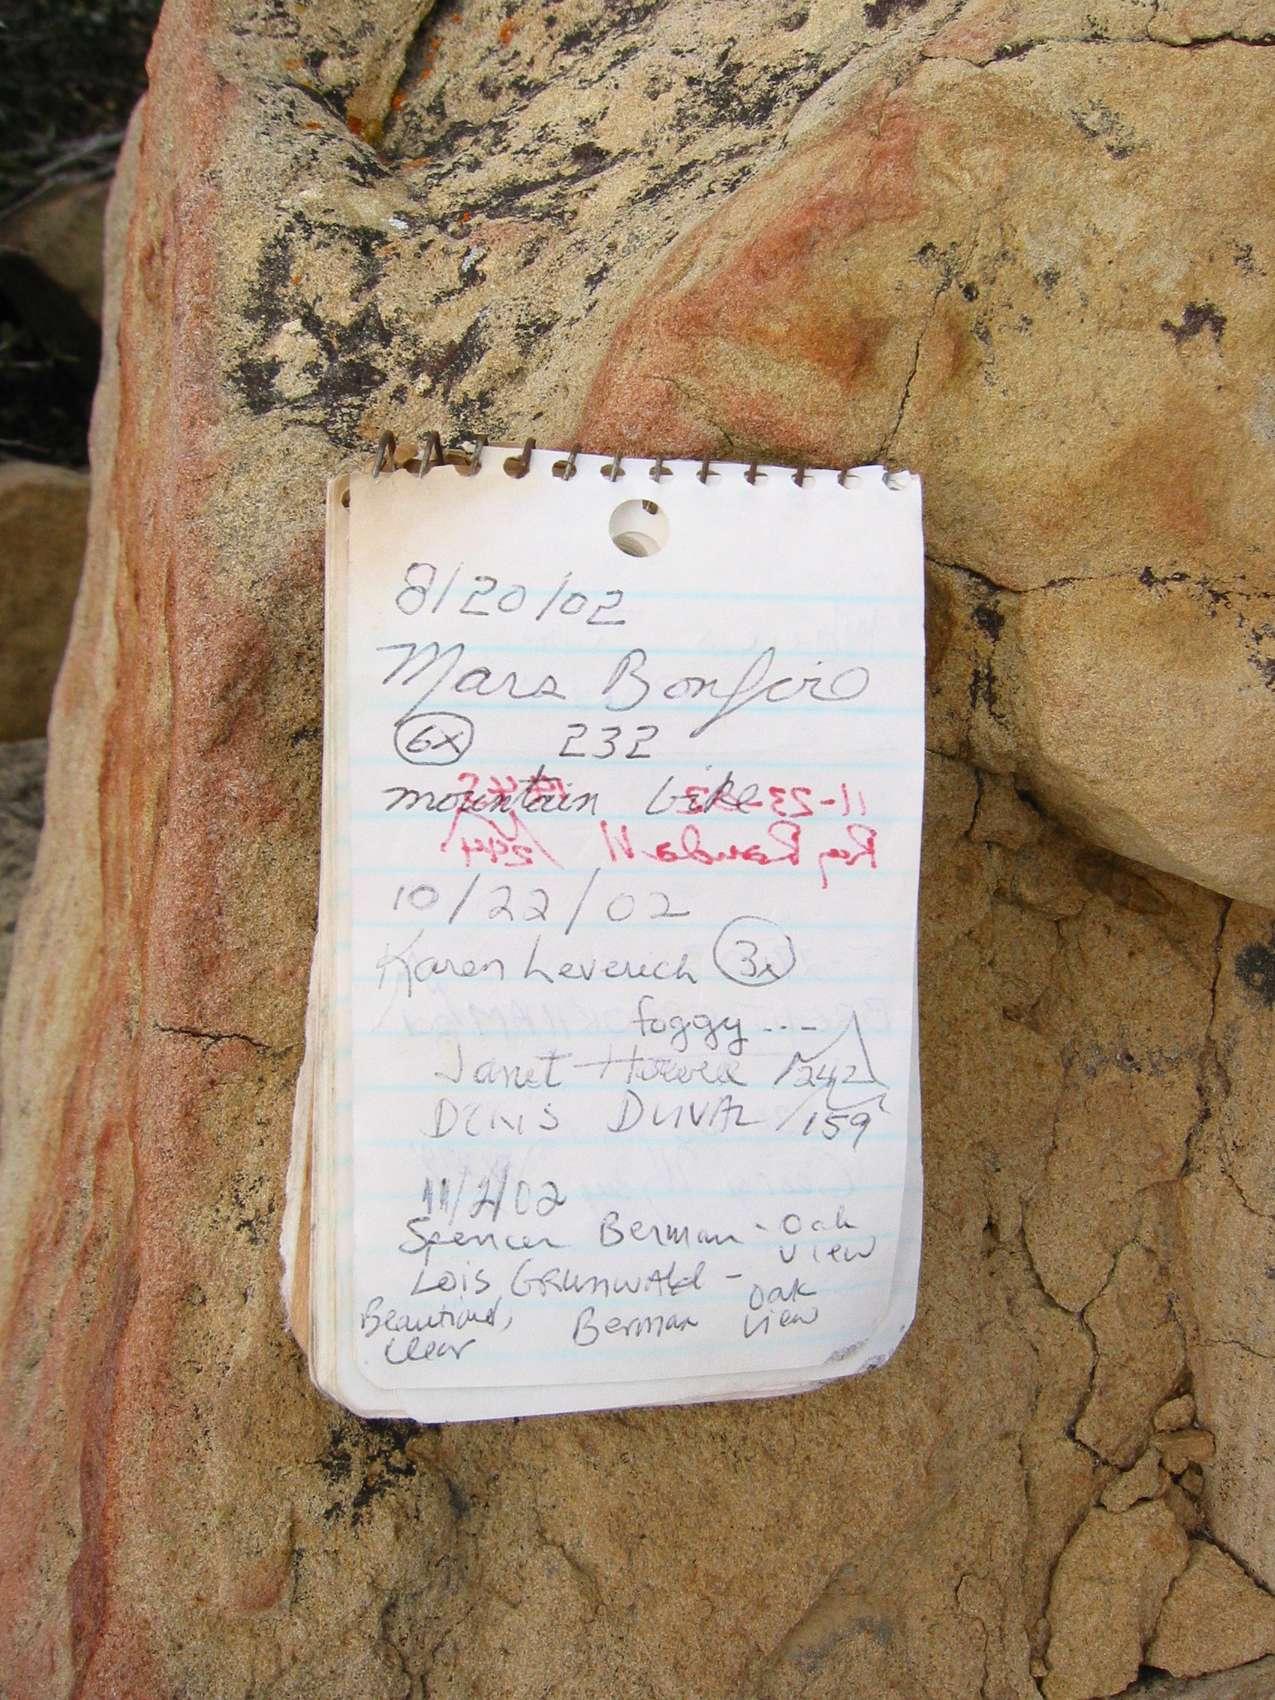 8/20/02
Mars Bonfire
6x 232
mountain bike
11-23-
10/22/02
Karen Leverich 3x
foggy ---
Janet Howell /242
DENIS DUVAL /159
11/2/02
Spencer Berman - Oak View
Lois GRUNWALd - Oak View
Berman
Beautiful, clear